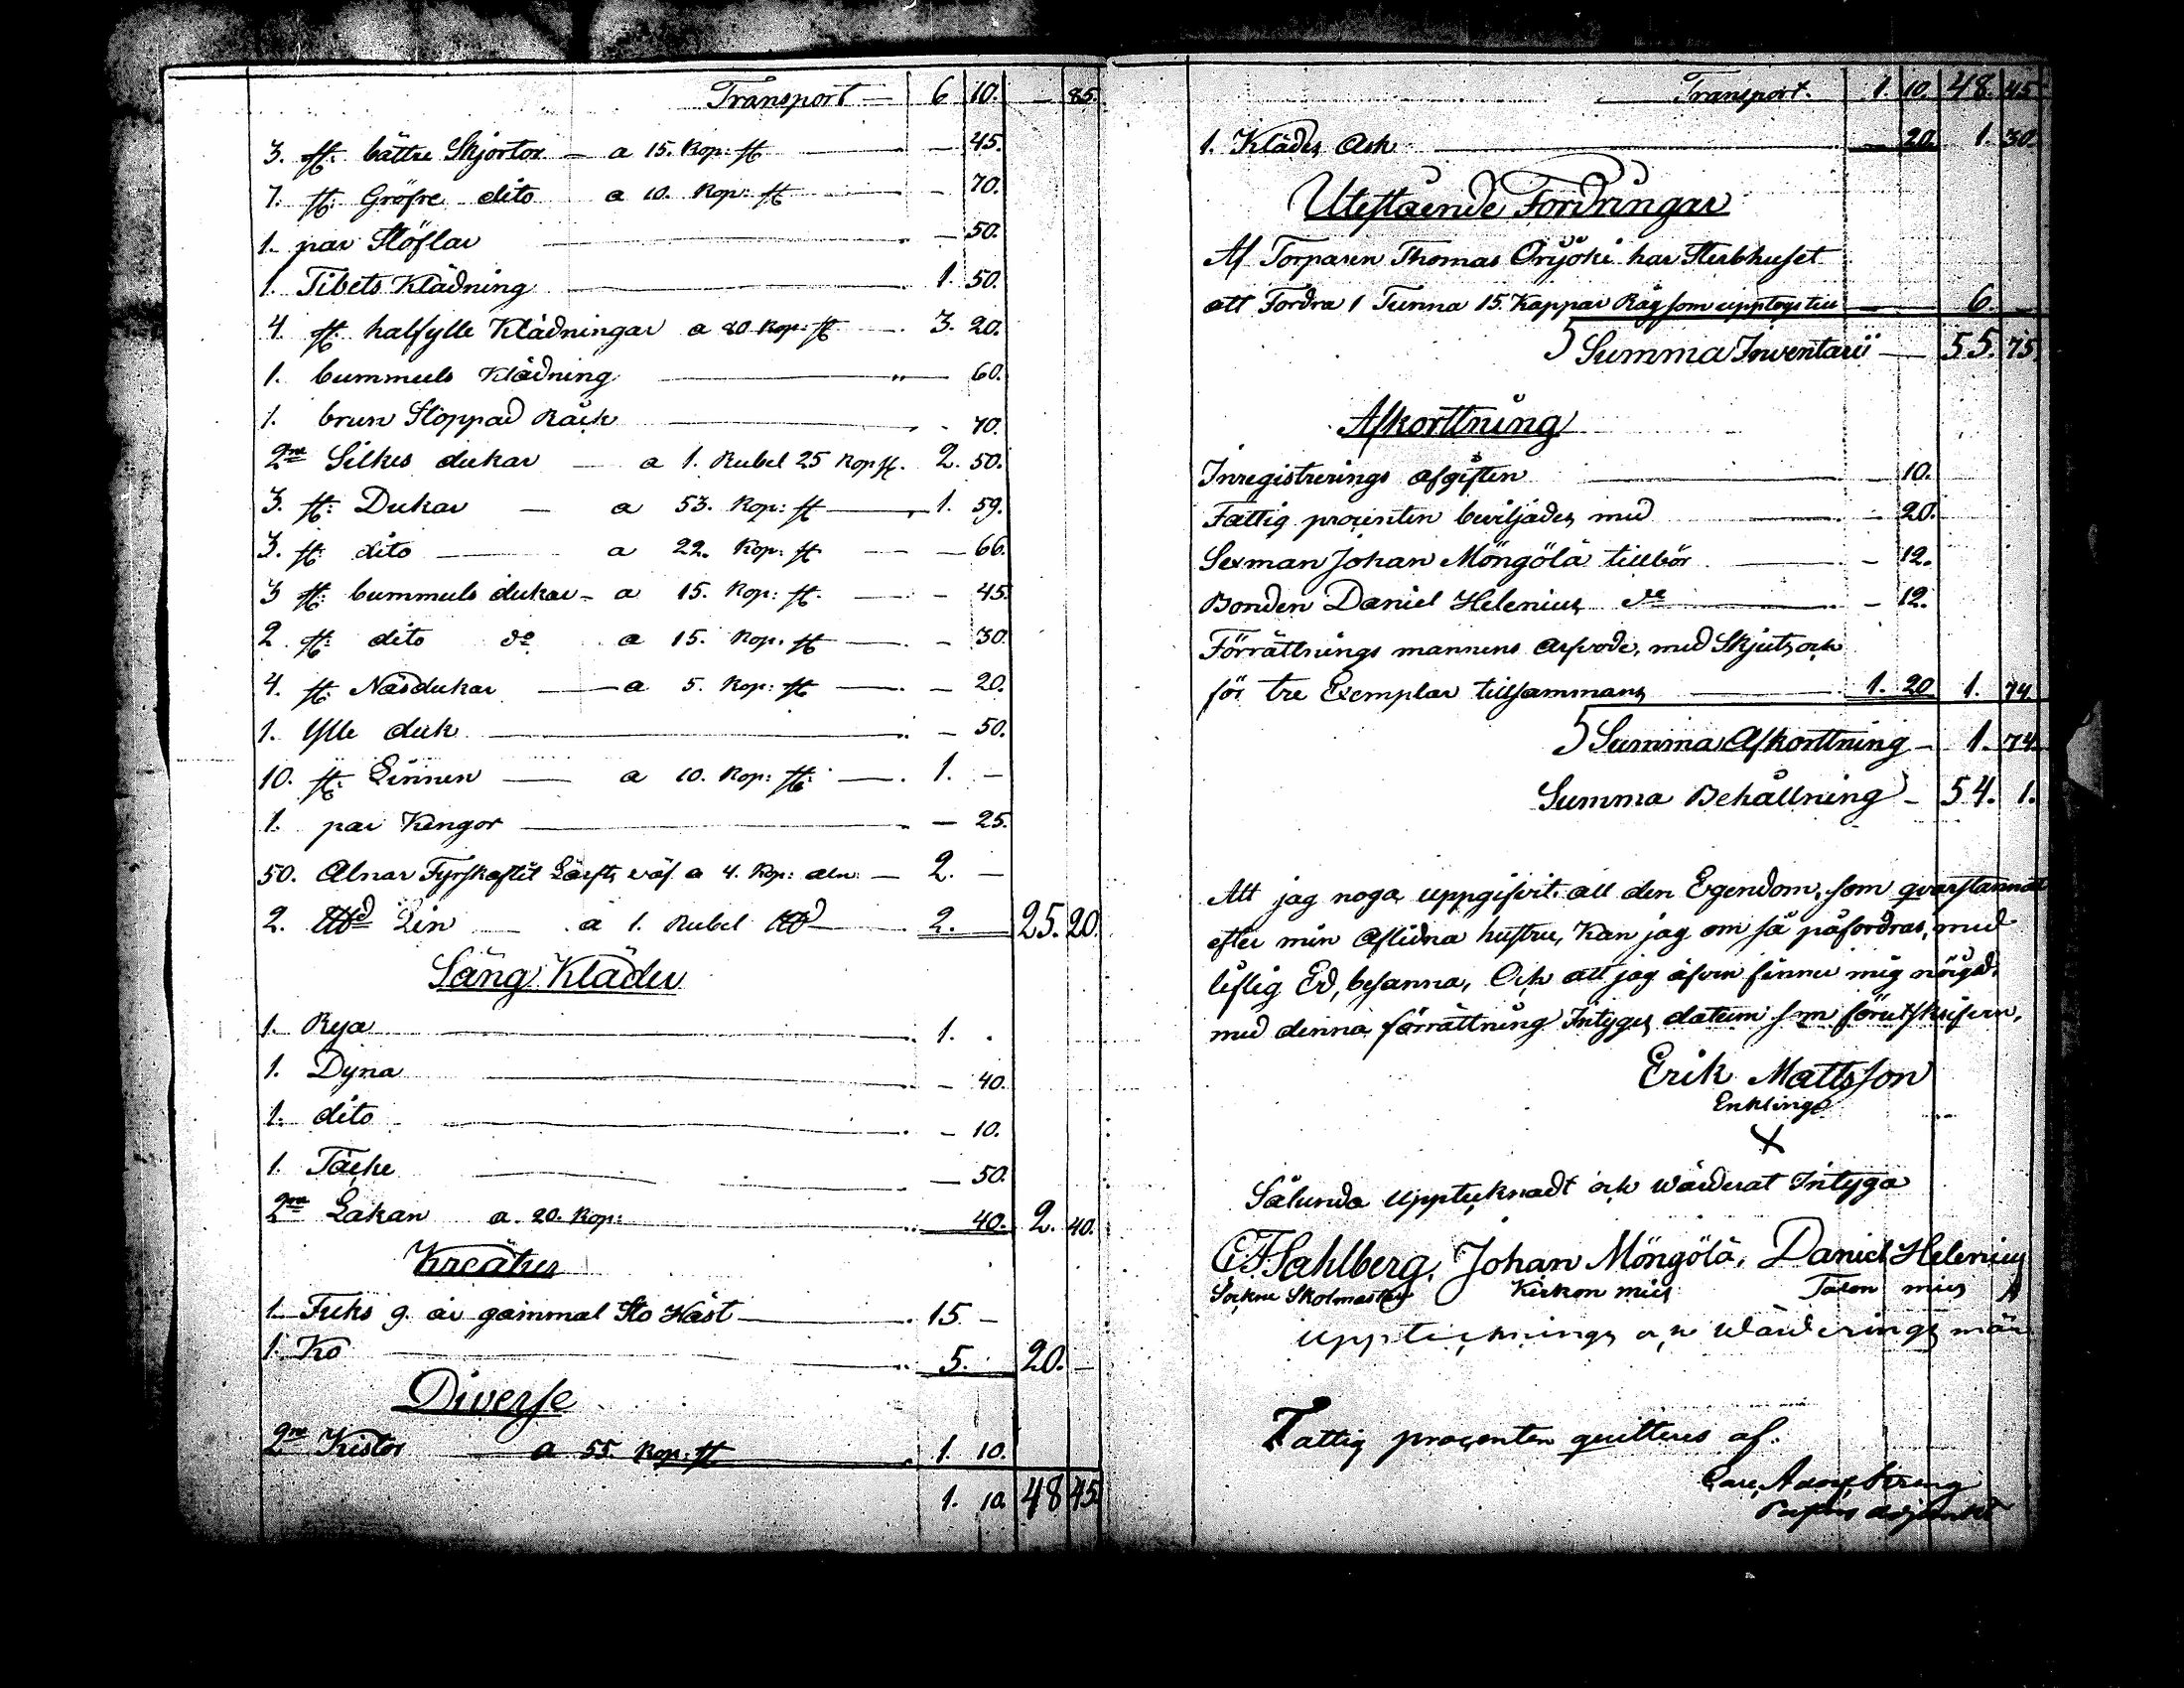 Transport — 6 10. — 85.
3. st: bättre Skjortor — a 15. Kop: st — — 45.
7. st: Gröfre dito a 10. Kop: st — — 70.
1. par Stöflar — — 50.
1. Tibets Klädning — 1. 50.
4. st: halfylle Klädningar a 80 Kop: st — 3. 20.
1. bummuls Klädning — „ — 60.
1. brun Stoppad Räck — - 70.
2ne Silkes dukar — a 1. Rubel 25 Kop st. 2. 50.
3. st: Dukar — a 53. Kop: st — 1. 59.
3. st: dito — a 22. Kop: st — — 66.
3 st: bummuls dukar - a 15. Kop: st. — - 45.
2 st: dito do a 15. Kop. st — - 30.
4. st. Näsdukar — a 5. Kop: st — — 20.
1. Ylle duk — — 50.
10. st: Linnen — a 10. Kop: st: — 1. —
1. par Kengor — — 25.
50. Alnar Fyrskaftit Lärfts väf a 4. Kop: aln — 2. —
2. Lin — a 1. Rubel — 2. 25. 20.
Säng Kläder
1. Rya — 1. .
1. Dyna — - 40.
1. dito — - 10.
1. Täcke — — 50.
2ne Lakan a. 20. Kop: — 40. 2. 40.
Kreatur
1. Fuks 9. år gammal Sto Häst — 15. —
1. Ko — 5. 20. —
Diverse
2ne Kistor — a 55. Kop: st — 1. 10.
1. 10. 48 45.
Transport. 1. 10. 48. 45
1. Kläder Ask — 20. 1. 30.
Utestående Fordringar
Af Torparen Thomas Orijoki har Sterbhuset
att Fordra 1 Tunna 15. Kappar Råg som upptogs till — 6. —
Summa Inventarii — 55. 75
Afkorttning
Inregistrerings afgiften — - 10.
Fattig procenten beviljades med — - 20.
Sexman Johan Möngölä tillbör — - 12.
Bonden Daniel Helenius do — - 12.
Förrättnings mannens Arfvode, med Skjuts och
för tre Exemplar tillsammans — 1. 20 1. 74.
Summa Afkorttning — 1. 74.
Summa Behållning — 54. 1.
Att jag noga uppgifvit all den Egendom, som qvarstannat
efter min Aflidna hustru, Kan jag om så påfordras, med
liflig Ed, besanna, Och att jag äfven finner mig nöigd,
med denna förrättning Intyges datum som förutskrifven,
Erik Mattsson
Enkling
X
Sålunda Upptecknadt och Wärderat Intyga
C F Sahlberg, Johan Möngölä, Daniel Helenius
Sockne Skolmästare Kirkon mies Talon mies
Upptecknings och Wärderings män
Fattig procenten quitteras af.